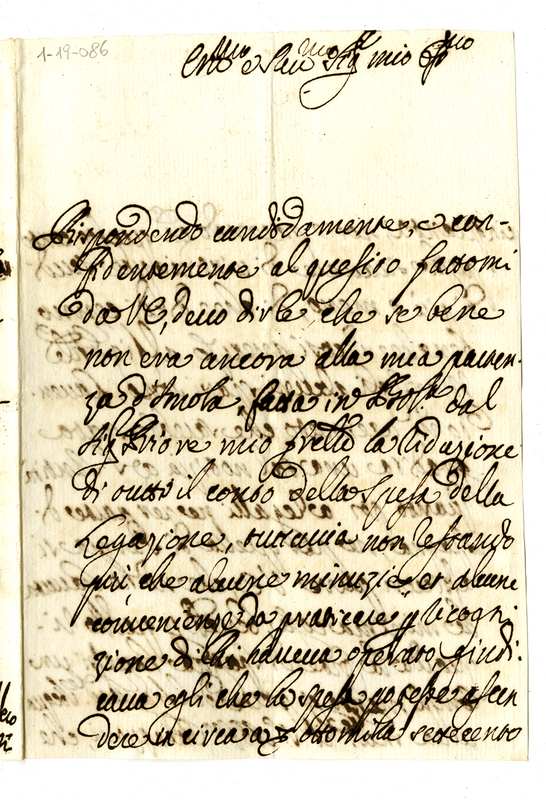 1-19-086
Sig mio
Rispondendo candidamente, e con-
fidentemente al quesito fattomi
da VE, devo dirle che se bene
non era ancora alla mia parten-
za d'Imola, fatta in dal
Sig Priore mio frello la liduzione
di tutto il conto della spesa della
Legazione, tuttavia non restando
più, che alcune minuzie et alcune
convenienze da praticare p ricogni-
zione di chi haveva operato, giudi-
cava egli che la spesa potesse ascen
dere in circa a ottomilla settecento